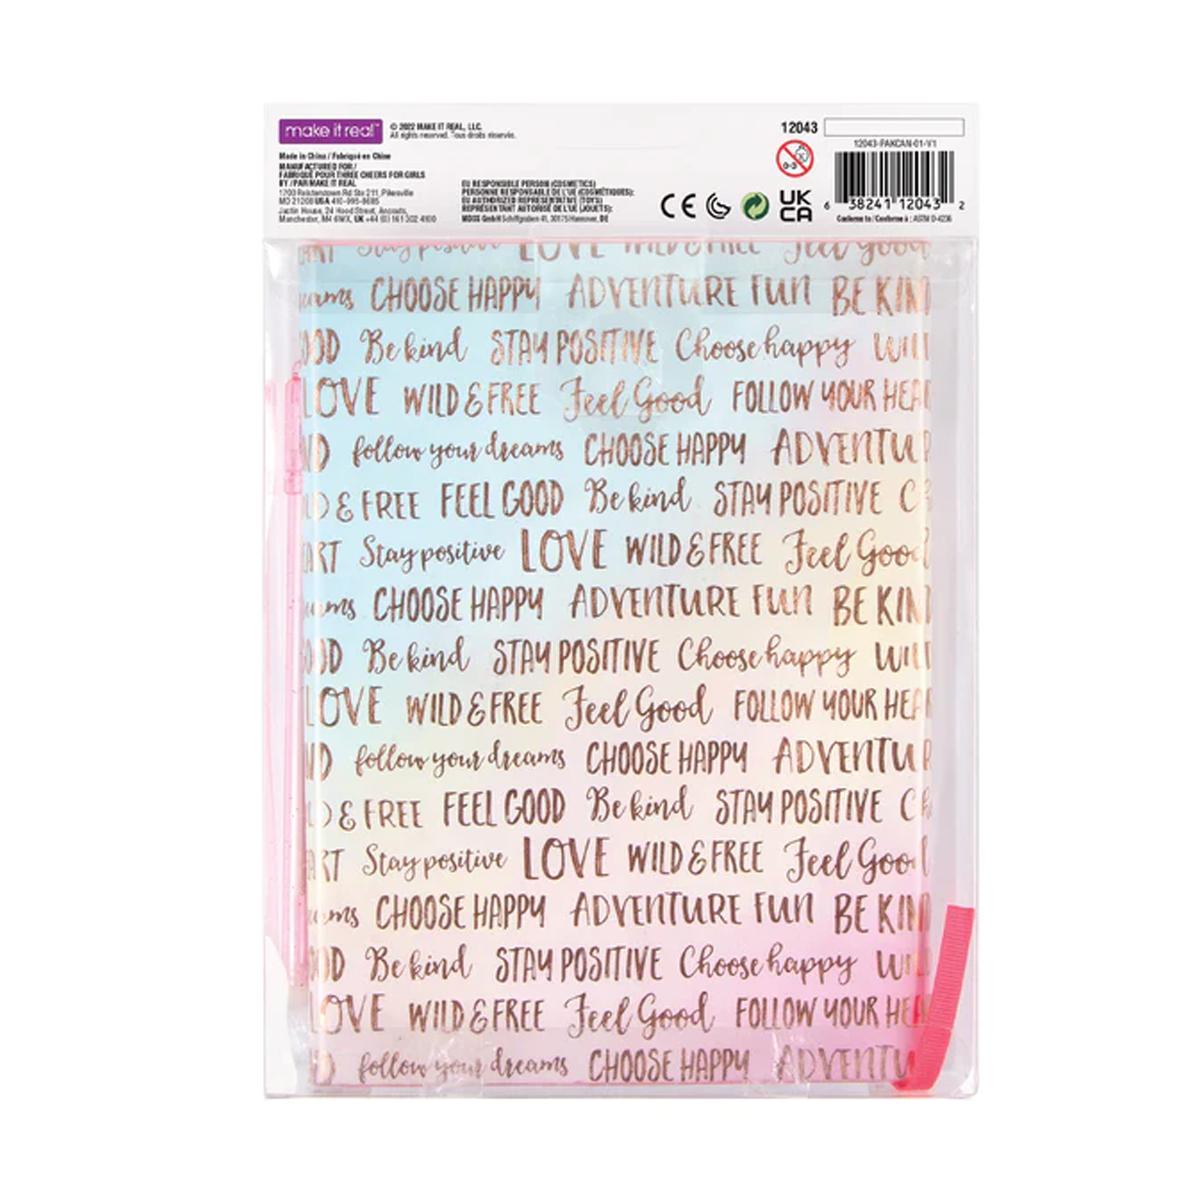 make it real™
© 2022 MAKE IT REAL, LLC.
All rights reserved. Tous droits réservés.
Made in China / Fabriqué en Chine
MANUFACTURED FOR /
FABRIQUÉ POUR THREE CHEERS FOR GIRLS
BY / PAR MAKE IT REAL
1700 Reisterstown Rd Ste 211, Pikesville
MD 21208 USA 410-995-8685
Jactin House, 24 Hood Street, Ancoats,
Manchester, M4 6WX, UK +44 (0) 161 302 4100
EU RESPONSIBLE PERSON (COSMETICS)
PERSONNE RESPONSABLE DE L'UE (COSMÉTIQUES):
EU AUTHORIZED REPRESENTATIVE (TOYS)
REPRÉSENTANT AUTORISÉ DE L'UE (JOUETS):
MDSS GmbH Schiffgraben 41, 30175 Hannover, DE
CE
UK
CA
12043
0-3
12043-PAKCAN-01-V1
6 38241 12043 2
Conforms to / Conforme à : ASTM D-4236
ART Stay positive LOVE WILD & FREE Feel Good
eams CHOOSE HAPPY ADVENTURE FUN BE KIN
OOD Be kind STAY POSITIVE Choose happy WIL
LOVE WILD & FREE Feel Good FOLLOW YOUR HEA
ND follow your dreams CHOOSE HAPPY ADVENTUR
LD & FREE FEEL GOOD Be kind STAY POSITIVE C
ART Stay positive LOVE WILD & FREE Feel Good
eams CHOOSE HAPPY ADVENTURE FUN BE KIN
OOD Be kind STAY POSITIVE Choose happy WIL
LOVE WILD & FREE Feel Good FOLLOW YOUR HEA
ND follow your dreams CHOOSE HAPPY ADVENTUR
LD & FREE FEEL GOOD Be kind STAY POSITIVE Ch
ART Stay positive LOVE WILD & FREE Feel Good
eams CHOOSE HAPPY ADVENTURE FUN BE KIN
OOD Be kind STAY POSITIVE Choose happy WI
LOVE WILD & FREE Feel Good FOLLOW YOUR HEA
ND follow your dreams CHOOSE HAPPY ADVENTU